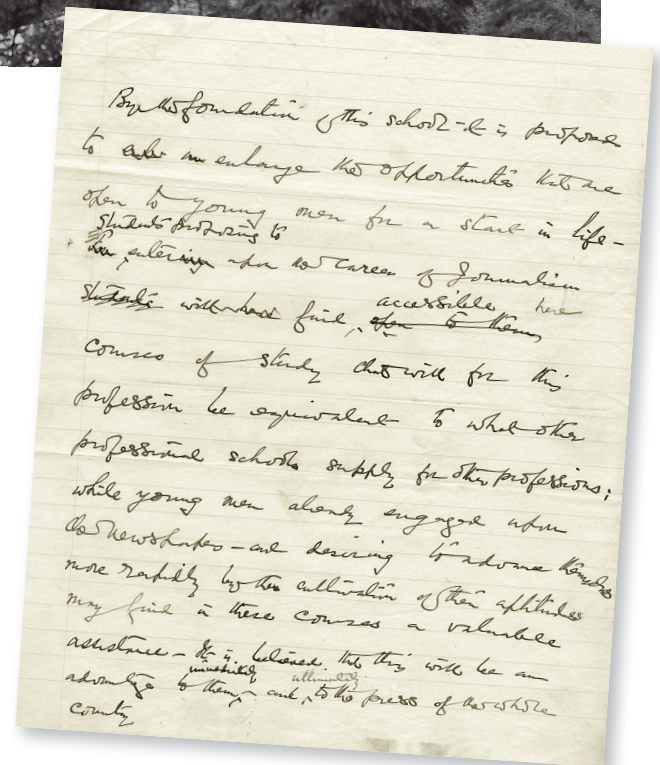 By the foundation of this school - it is proposed
to enlarge the opportunities that are
open to young men for a start in life -
students proposing to
enter upon the career of Journalism
accessible here
students will find, open to them,
courses of study that will for this
profession be equivalent to what other
professional schools supply for other professions;
while young men already engaged upon
the newspapers - and desiring to advance themselves
more rapidly by the cultivation of their aptitudes
may find in these courses a valuable
assistance - It is believed that this will be an
immediately ultimately
advantage to them, - and, to the press of the whole
country